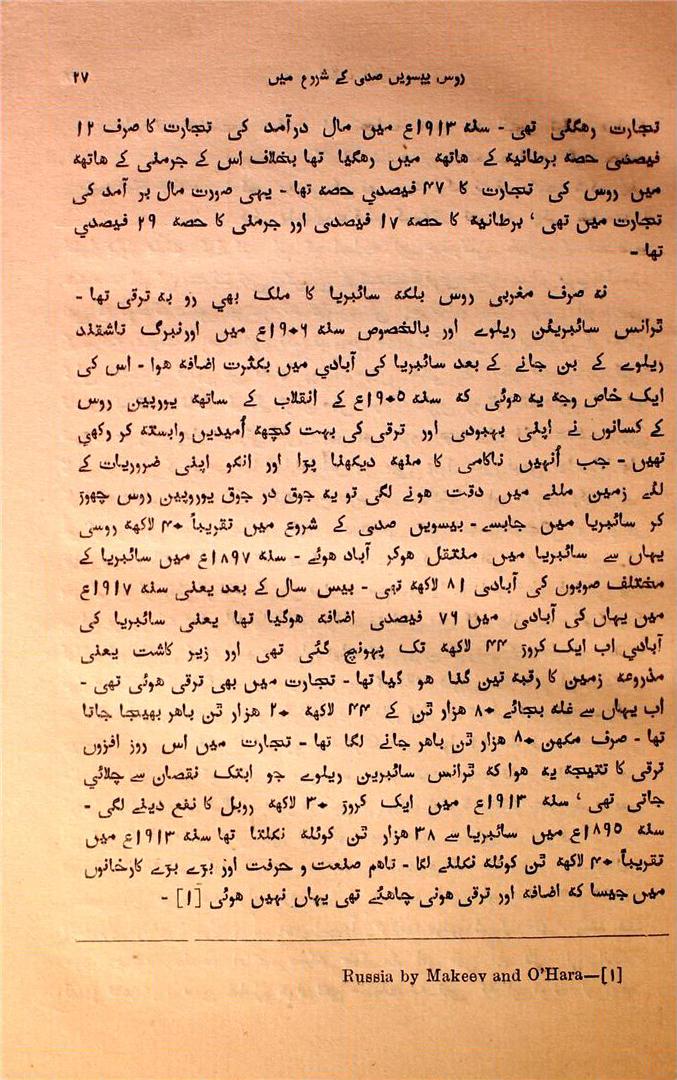 روس بیسویں صدی کے شروع میں ۲۷
تجارت رهگئی تهی - سنه ۱۹۱۳ع میں مال درآمد کی تجارت کا صرف ۱۲
فیصدی حصه برطانیه کے هاتهه میں رهگیا تها بخلاف اس کے جرمنی کے هاتهه
میں روس کی تجارت کا ۴۷ فیصدي حصه تها - یهی صورت مال بر آمد کی
تجارت میں تهی ' برطانیه کا حصه ۱۷ فیصدی اور جرمنی کا حصه ۲۹ فیصدي
تها -
نه صرف مغربی روس بلکه سائبریا کا ملک بهي رو به ترقی تها -
ٹرانس سائبریئن ریلوے اور بالخصوص سنه ۱۹۰۶ع میں اورنبرگ تاشقند
ریلوے کے بن جانے کے بعد سائبریا کی آبادي میں بکثرت اضافه هوا - اس کی
ایک خاص وجه یه هوئی که سنه ۱۹۰۵ع کے انقلاب کے ساتهه یورپین روس
کے کسانوں نے اپنی بهبودی اور ترقی کی بهت کچهه اُمیدیں وابسته کر رکهی
تهیں - جب اُنهیں ناکامی کا منهه دیکهنا پڑا اور انکو اپنی ضروریات کے
لئے زمین ملنے میں دقت هونے لگی تو یه جوق در جوق یوروپین روس چهوڑ
کر سائبریا میں جابسے - بیسویں صدی کے شروع میں تقریباً ۴۰ لاکهه روسی
یهاں سے سائبریا میں منتقل هوکر آباد هوئے - سنه ۱۸۹۷ع میں سائبریا کے
مختلف صوبوں کی آبادی ۸۱ لاکهه تهی - بیس سال کے بعد یعنی سنه ۱۹۱۷ع
میں یهاں کی آبادی میں ۷۶ فیصدی اضافه هوگیا تها یعنی سائبریا کی
آبادي اب ایک کروڑ ۴۴ لاکهه تک پهونچ گئی تهی اور زیر کاشت یعنی
مذروعه زمین کا رقبه تین گنا هو گیا تها - تجارت میں بهی ترقی هوئی تهی -
اب یهاں سے غله بجائے ۸۰ هزار ٹن کے ۴۴ لاکهه ۲۰ هزار ٹن باهر بهیجا جاتا
تها - صرف مکهن ۸۰ هزار ٹن باهر جانے لگا تها - تجارت میں اس روز افزوں
ترقی کا نتیجه یه هوا که ٹرانس سائبرین ریلوے جو ابتک نقصان سے چلائي
جاتی تهی ' سنه ۱۹۱۳ع میں ایک کروڑ ۳۰ لاکهه روبل کا نفع دینے لگی -
سنه ۱۸۹۵ع میں سائبریا سے ۳۸ هزار ٹن کوئله نکلتا تها سنه ۱۹۱۳ع میں
تقریباً ۴۰ لاکهه ٹن کوئله نکلنے لگا - تاهم صنعت و حرفت اور بڑے بڑے کارخانوں
میں جیسا که اضافه اور ترقی هونی چاهئے تهی یهاں نهیں هوئی [۱] -
Russia by Makeev and O'Hara—[۱]